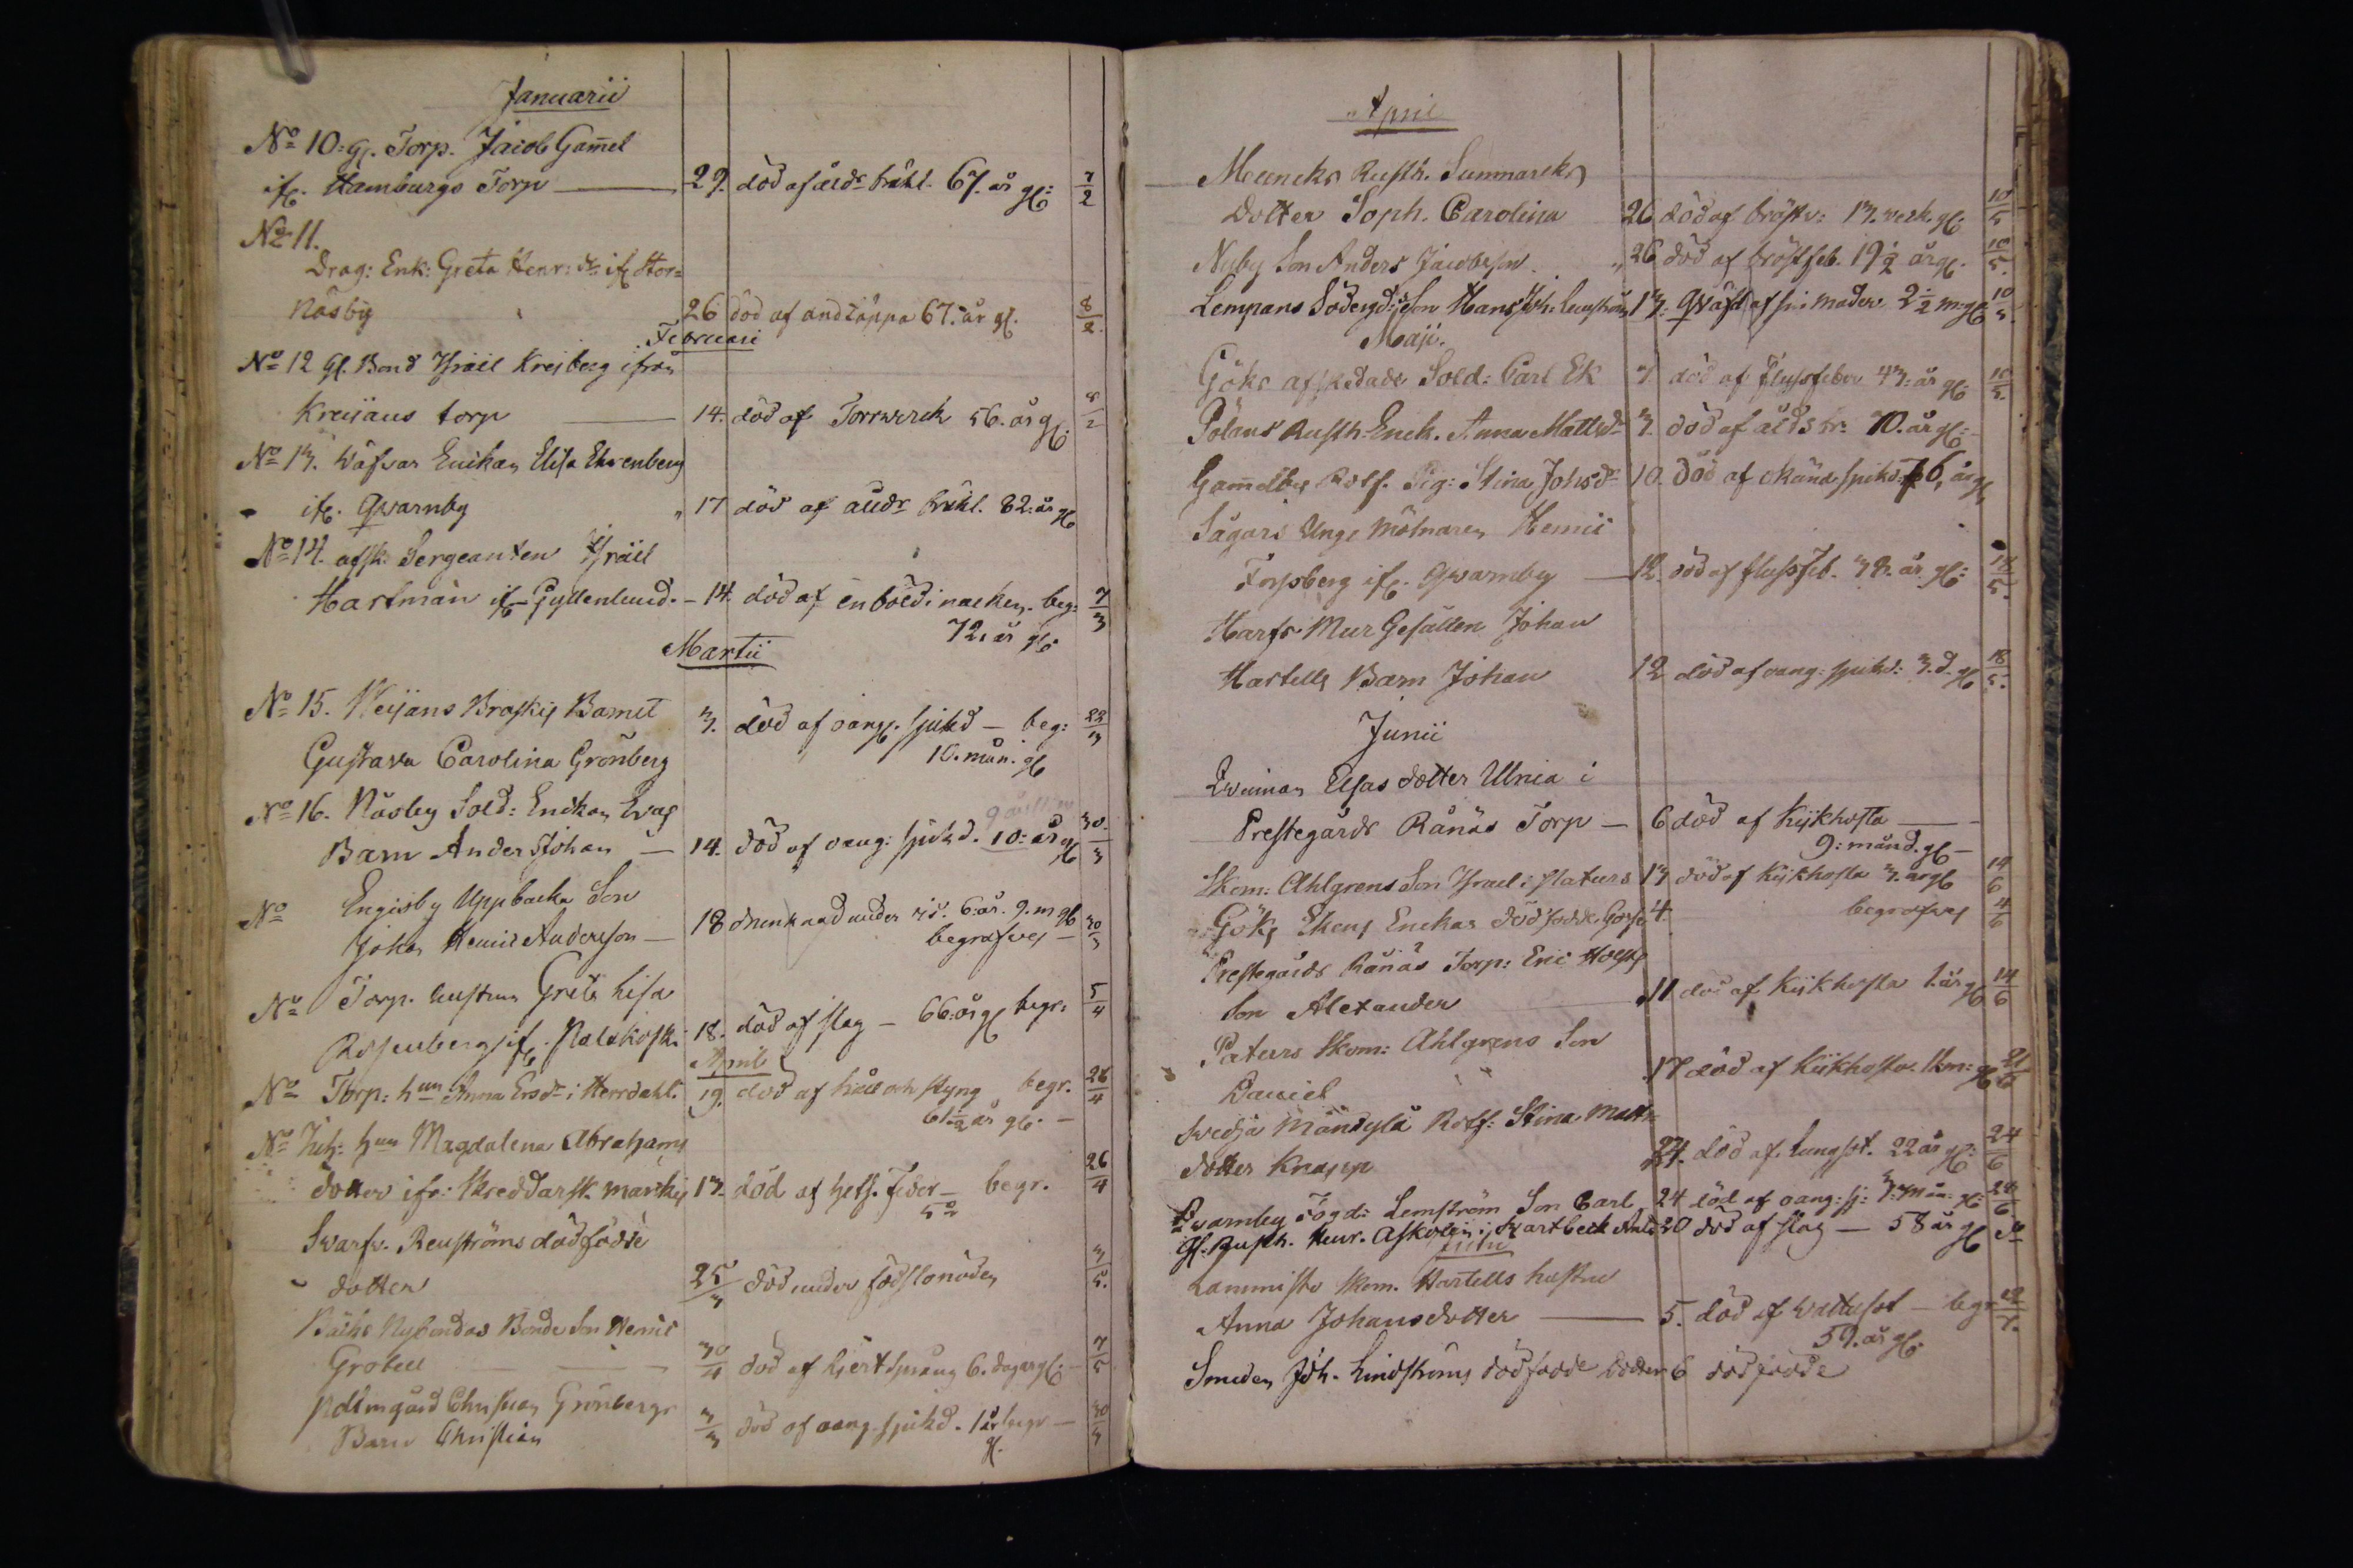 Januarii
No 10: gl. Torp. Jacob Gam̃el
ifr. Hamburgs Torp — 29. död af ålds bräkl. 67. år gl: 7/2
No 11.
Drag: Enk: Greta Henr: dr ifr Stor=
Näsby 26 död af andtäppa 67. år gl. 8/2
Februari
No 12 gl. Bond Israel Kreÿberg ifrån
Kreijans torp — 14. död af Torrwerk 56. år gl. 8/2
No 13. Wäfvar Enikan Elisa Ehrenberg
ifr. Qwarnby 17 död af åldr bräkl. 82. år gl
No 14. afsk. Sergeanten Israel
Hartman ifr Gyllenlund. – 14. död af en böld i nacken. beg: 7/3
72. år gl.
Martii
No 15. Weijans Braskis Barnet 3. död af oang. sjukd — beg: 22/3
Gustava Carolina Grönberg 10. mån. gl
No 16. Näsby Sold: Enckan Evas
Barn Anders Johan — 14. död af oang: sjukd. 10: år gl 30/3
No Engisby Uppbacka Son
Johan Henric Andersson — 18 drunknad under is. 6: år. 9. m gl 30/3
begrafves —
No Torp. hustrun Greta Lisa
Rosenberg ifr. Palakoski 18. död af slag — 66: år gl begr: 5/4
April
No Torp: hun Anna Ersdr i Herrdahl. 19. död af håll och styng begr. 26/4
61 1/2 år gl. —
No Inh: hun Magdalena Abrahams
dotter ifr: Skreddarsk. 13. död af hets. Feber — begr. 26/4
50
Svarfv. Renströms dödfödde
dotter 25/3 död under födslonöden 3/5.
Bäcks Nybondas Bonde Son Henric
Grotell 30/4 död af hjertsprång 6. dagar gl. 7/5
Holmgård Christian Grönbergs
Barn Christian 3/3 död af oang. sjukd. 1 år begr — 30/3
gl.
April
Muncks Rusth. Sunnarcks
dotter Soph. Carolina 26 död af bröstv: 13. veck. gl. 10/5
Nyby Son Anders Jacobsson. 26 död af bröstfeb. 19 1/2 år gl. 10/5.
Lempans Södergd: Son Hans Joh: 13: Qwäfd af sin moder 2 1/2 m: gl 10/5.
Maji.
Göks afskedade Sold: Carl Ek 7 död af flussfeber 43: år gl: 10/5.
Pölans Rusth. Enck. Anna Mattsdr 7. död af ålds br: 70. år gl: —
Gam̃elby Rotf. Pig: Stina Johsdr 10. död af okänd sjukd: 6, år gl
Sågars Unge Mölnaren Henric
Forssberg ifr. Qwarnby — 12. död af flussfeb. 38. år gl: 18/5.
Harfs Mur Gesällen Johan
Hartells Barn Johan 12 död af oang: sjukd: 3. d. gl 18/5.
Junii
Qwinnan Elsas dotter Ulrica i
Prestegårds Rånäs Torp — 6 död af Kikhosta —
9: månd. gl —
Skom: Ahlgrens Son Israel i Paturs 13 död af Kikhosta 3. år gl 14/6
Göks Ekens Enckas död 4. begrafves 4/6
Prestegårds Rånäs Torp: Eric Holsts
Son Alexander 11 död af Kikhosta 1. år gl 14/6
Paturs Skom: Ahlgrens Son
Daniel 17 död af Kikhosta. 1 km: gl 21/6
Svedja Mändylä Rotf: Stina Matts
dotter Knapp 24. död af lungsot. 22 år gl: 24/6
Qwarnby Fogd: Lemström Son Carl 24 död af oang: sj: 3: mån: gl: 24/6.
gl. Rusth. Henr. Askolin i Svartbeck 20 död af slag — 58 år gl
Julii
Lammisto Skom. Hartells hustru
Anna Johansdotter — 5. död af wattusot — begr 12/7.
59. år gl.
Smeden Joh. Lindströms dödfödde dotter 6 dödfödde